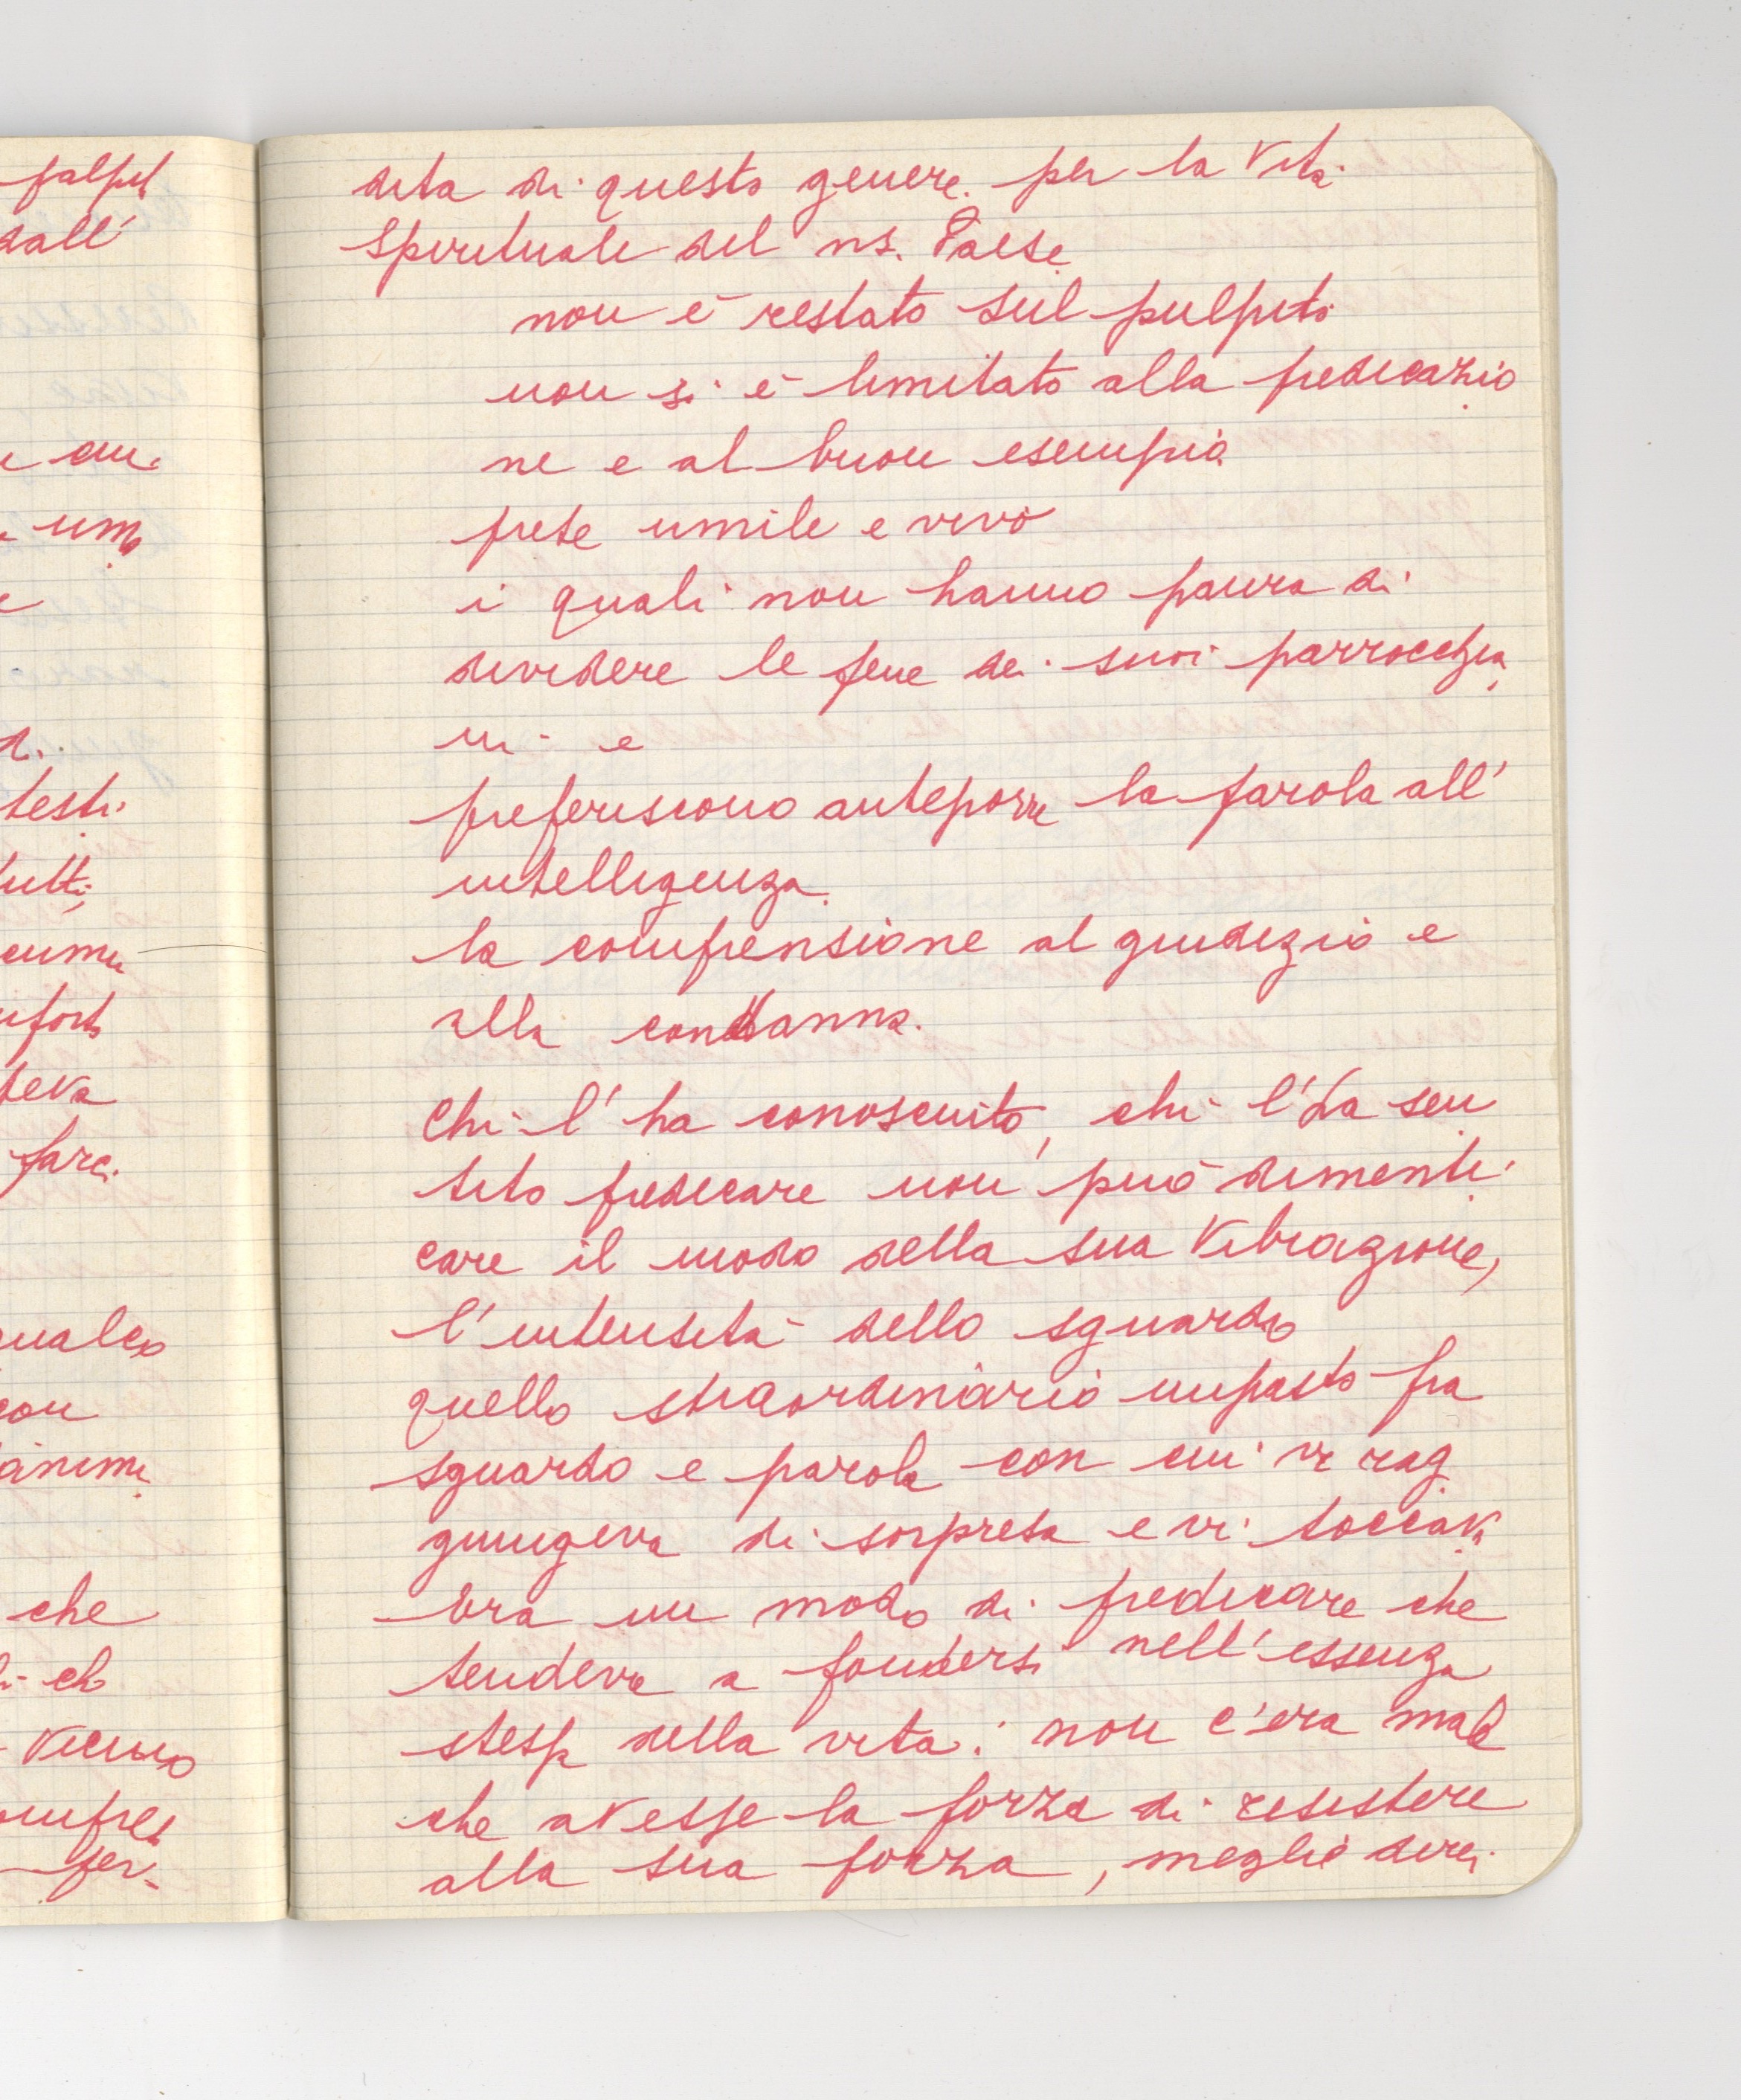 palpit
dall'
um
e
testi
tutti
cumu
teva
fare
qualco
con
animi
che
vicino
per-
dita di questo genere per la vita
spirituale del ns. Paese
non è restato sul pulpito
non si è limitato alla predicazio
ne e al buon esempio
prete umile e vivo
i quali non hanno paura di
dividere le pene dei suoi parrocchia
ni e
preferiscono anteporre la parola all'
intelligenza.
la comprensione al giudizio e
alla condanna.
Chi l'ha conosciuto, chi l'ha sen
tito predicare non può dimenti
care il modo della sua vibrazione,
l'intensità dello sguardo
quello straordinario impasto fra
sguardo e parola con cui vi rag
giungeva di sorpresa e vi toccava
Era un modo di predicare che
tendeva a fondersi nell'essenza
stessa della vita: non c'era male
che avesse la forza di resistere
alla sua forza, meglio direi